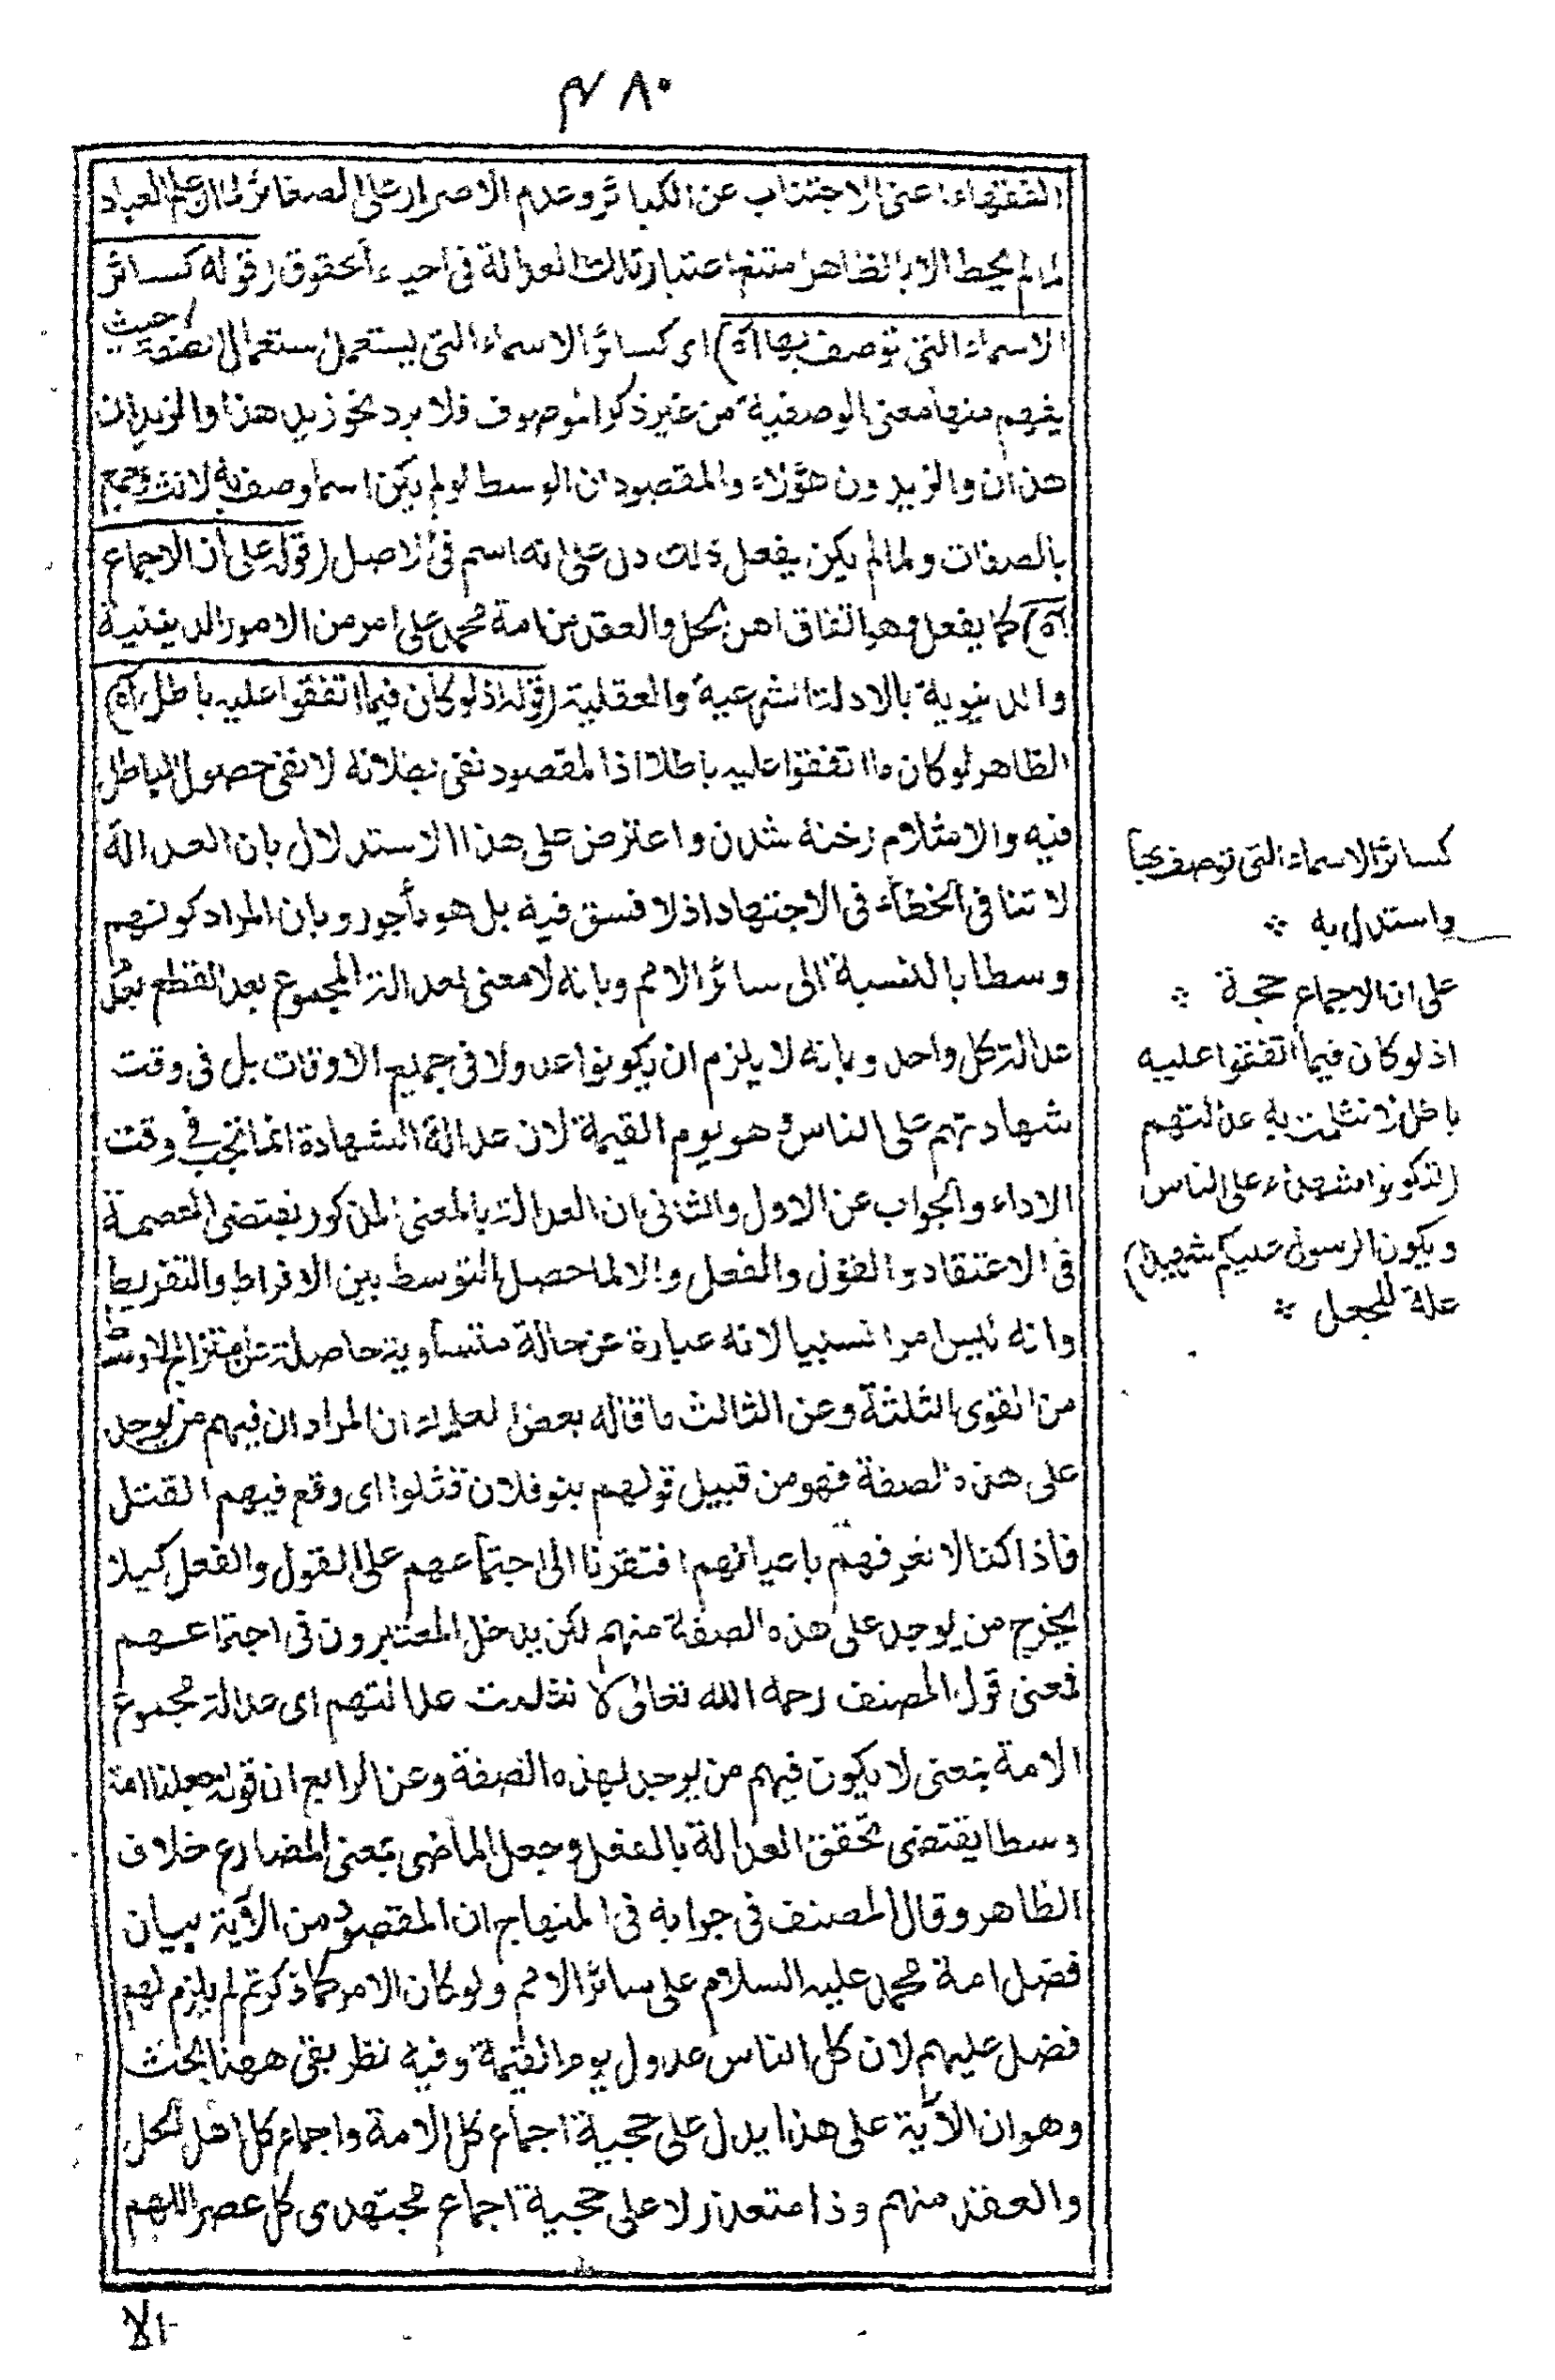 ٤٨٠
الفقهاء اعنى الاجتناب عن الكبائر وعدم الاصرار على الصغائر لما ان علم العباد
لما لم يحط الا بالظاهر امتنع اعتبار تلك العدالة فى احياء الحقوق (قوله كسائر
الاسماء التى توصف بها اه) اى كسائر الاسماء التى يستعمل استعمال الصفة حيث
يفهم منها معنى الوصفية من غير ذكر الموصوف فلا يرد نحو زيد هذا والزيدان
هذان والزيدون هؤلاء والمقصود ان الوسط لو لم يكن اسما وصف به لانث وجمع
بالصفات ولما لم يكن يفعل ذلك دل على انه اسم فى الاصل (قوله على ان الاجماع
اه) كما يفعل وهو اتفاق اهل الحل والعقد من امة محمد على امر من الامور الدينية
والدنيوية بالادلة الشرعية والعقلية (قوله اذ لو كان فيما اتفقوا عليه باطل اه)
الظاهر لو كان ما اتفقوا عليه باطلا اذ المقصود نفى بطلانه لا نفى حصول الباطل
فيه والانثلام رخنه شدن واعترض على هذا الاستدلال بان العدالة
لا تنافى الخطأ فى الاجتهاد اذ لا فسق فيه بل هو مأجور وبان المراد كونهم
وسطا بالنسبة الى سائر الامم وبانه لا معنى لعدالة المجموع بعد القطع بعدم
عدالة كل واحد وبانه لا يلزم ان يكونوا عدولا فى جميع الاوقات بل فى وقت
شهادتهم على الناس وهو يوم القيمة لان عدالة الشهادة انما تجب فى وقت
الاداء والجواب عن الاول والثانى بان العدالة بالمعنى المذكور يقتضى العصمة
فى الاعتقاد والقول والفعل والا لما حصل التوسط بين الافراط والتفريط
وانه ليس امرا نسبيا لانه عبارة عن حالة متساوية حاصلة عن امتزاج الاوساط
من القوى الثلثة وعن الثالث ما قاله بعض العلماء ان المراد ان فيهم من يوجد
على هذه الصفة فهو من قبيل قولهم بنو فلان قتلوا اى وقع فيهم القتل
فاذا كنا لا نعرفهم باعيانهم افتقرنا الى اجتماعهم على القول والفعل كيلا
يخرج من يوجد على هذه الصفة منهم لكن يدخل المعتبرون فى اجتماعهم
فمعنى قول المصنف رحمه الله تعالى لا نثلمت عدالتهم اى عدالة مجموع
الامة بمعنى لا يكون فيهم من يوجد بهذه الصفة وعن الرابع ان قوله جعلنا امة
وسطا يقتضى تحقق العدالة بالفعل وجعل الماضى بمعنى المضارع خلاف
الظاهر وقال المصنف فى جوابه فى المنهاج ان المقصود من الآية بيان
فضل امة محمد عليه السلام على سائر الامم ولو كان الامر كما ذكرتم لم يلزم لهم
فضل عليهم لان كل الناس عدول يوم القيمة وفيه نظر بقى ههنا بحث
وهو ان الآية على هذا يدل على حجية اجماع كل الامة واجماع كل اهل الحل
والعقد منهم وذا متعذر لا على حجية اجماع مجتهدى كل عصر اللهم
الا
كسائر الاسماء التى توصف بها
واستدل به
على ان الاجماع حجة
اذ لو كان فيما اتفقوا عليه
باطل لانثلمت به عدالتهم
(لتكونوا شهداء على الناس
ويكون الرسول عليكم شهيدا)
علة للجعل